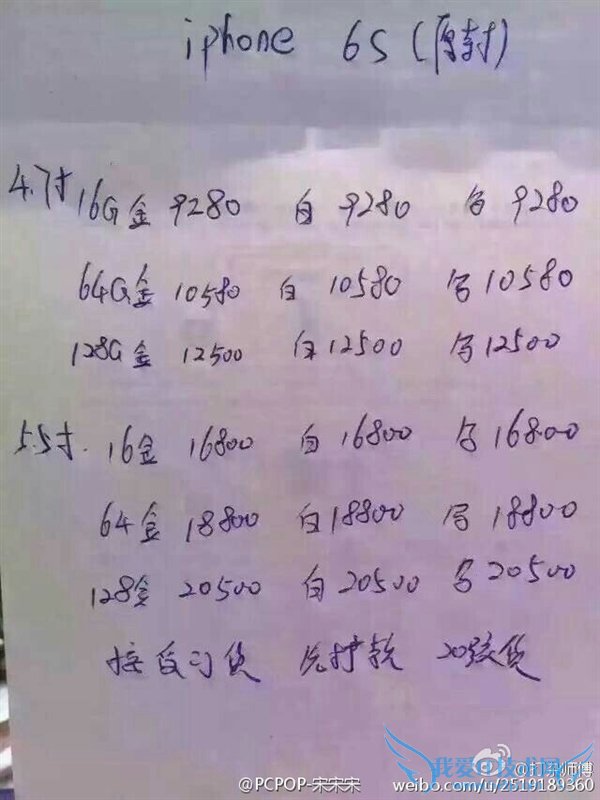 iphone 6S (原封)
4.7寸 16G金 9280 白 9280 9280
64G金 10580 白 10580 10580
128G金 12500 白12500 12500
5.5寸. 16金 16800 白16800 16800
64金 18800 白18800 18800
128金 20500 白20500 20500
货 款 20 货
@PCPOP-宋宋宋
我爱IT技术网
weibo.com/u/2519189360